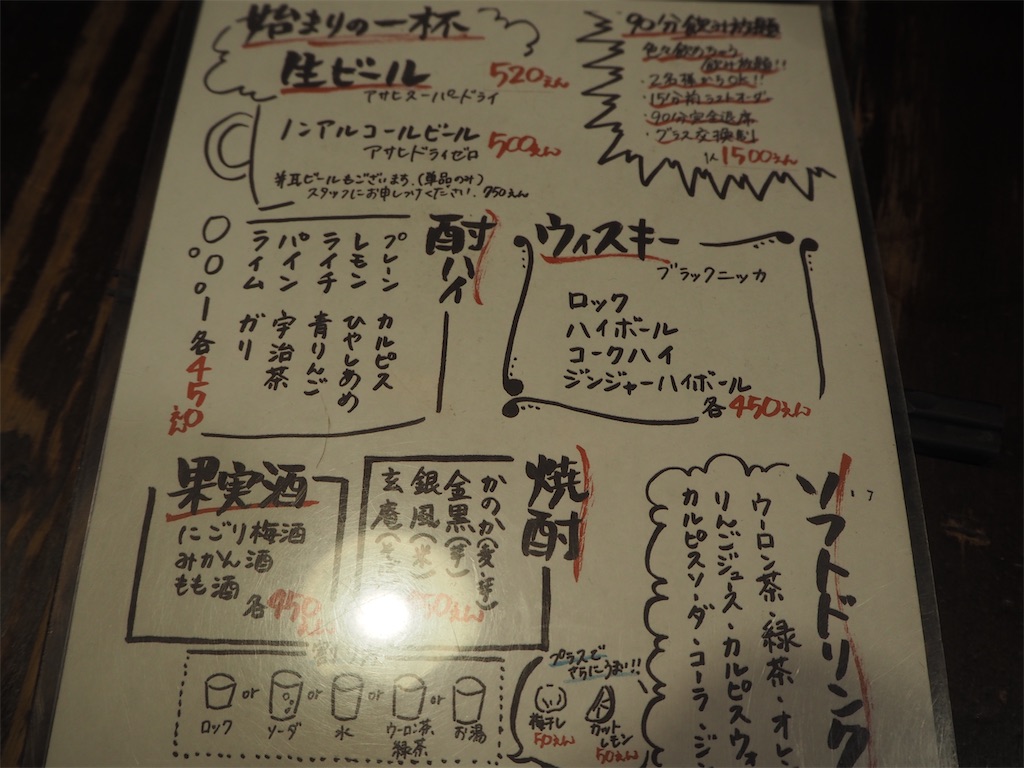 始まりの一杯
生ビール 520えん
アサヒスーパードライ
ノンアルコールビール 500えん
アサヒドライゼロ
芋耳ビールもございます。(単品のみ)
スタッフにお申しつけください。750えん
90分飲み放題
色々飲めちゃう
飲み放題!!
・2名様からOK!!
・15分前ラストオーダー
・90分完全退席
・グラス交換制
1人1500えん
酎ハイ
プレーン カルピス
レモン ひやしあめ
ライチ 青りんご
パイン 宇治茶
ライム ガリ
各450えん
ウィスキー
ブラックニッカ
ロック
ハイボール
コークハイ
ジンジャーハイボール
各450えん
果実酒
にごり梅酒
みかん酒
もも酒
各450えん
焼酎
かのか(麦・芋)
金黒(芋)
銀風(米)
玄庵(そば)
えん
ソフトドリンク
ウーロン茶・緑茶・オレン
りんごジュース・カルピスウォ
カルピスソーダ・コーラ・ジン
ロック or ソーダ or 水 or ウーロン茶 緑茶 or お湯
プラスで
さらにうまい!!
梅干し 50えん
カットレモン 50えん